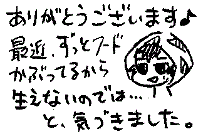 ありがとうございます♪
最近、ずっとフード
かぶってるから
生えないのでは…
と、気づきました。